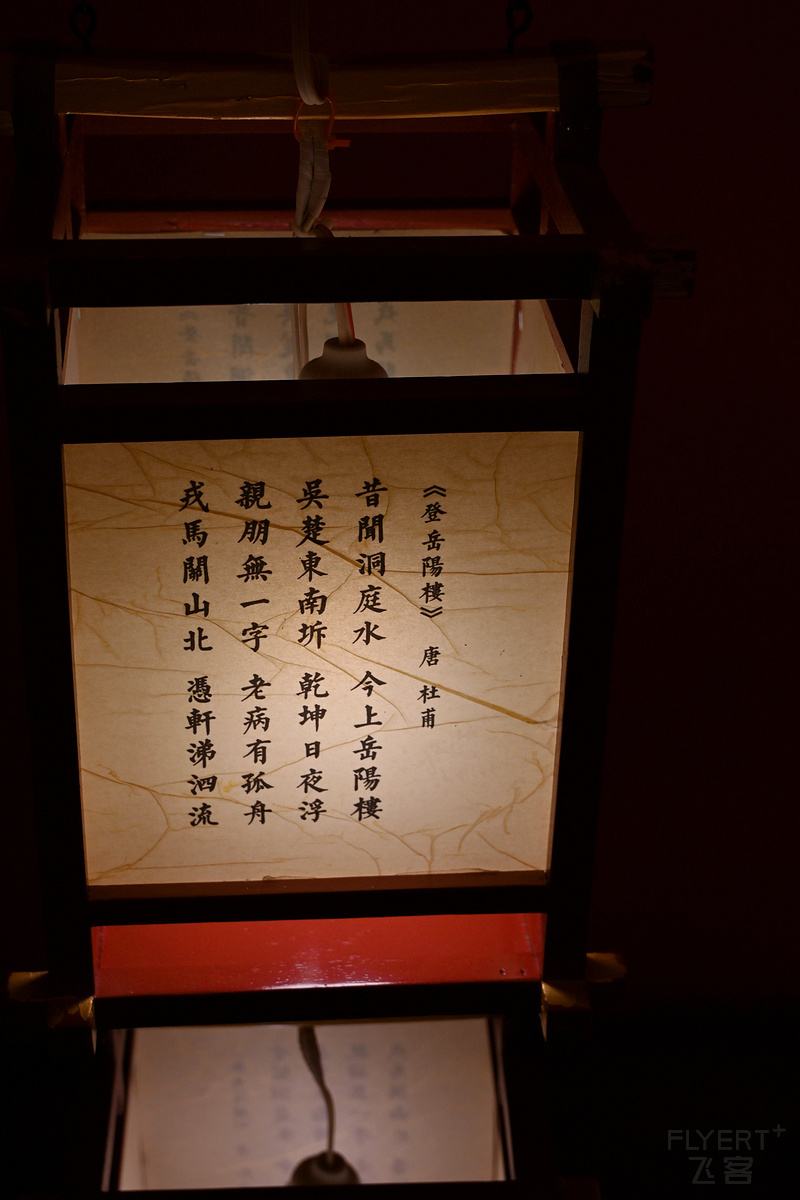 《登岳陽樓》 唐 杜甫
昔聞洞庭水 今上岳陽樓
吳楚東南坼 乾坤日夜浮
親朋無一字 老病有孤舟
戎馬關山北 憑軒涕泗流
FLYERT+
飞客